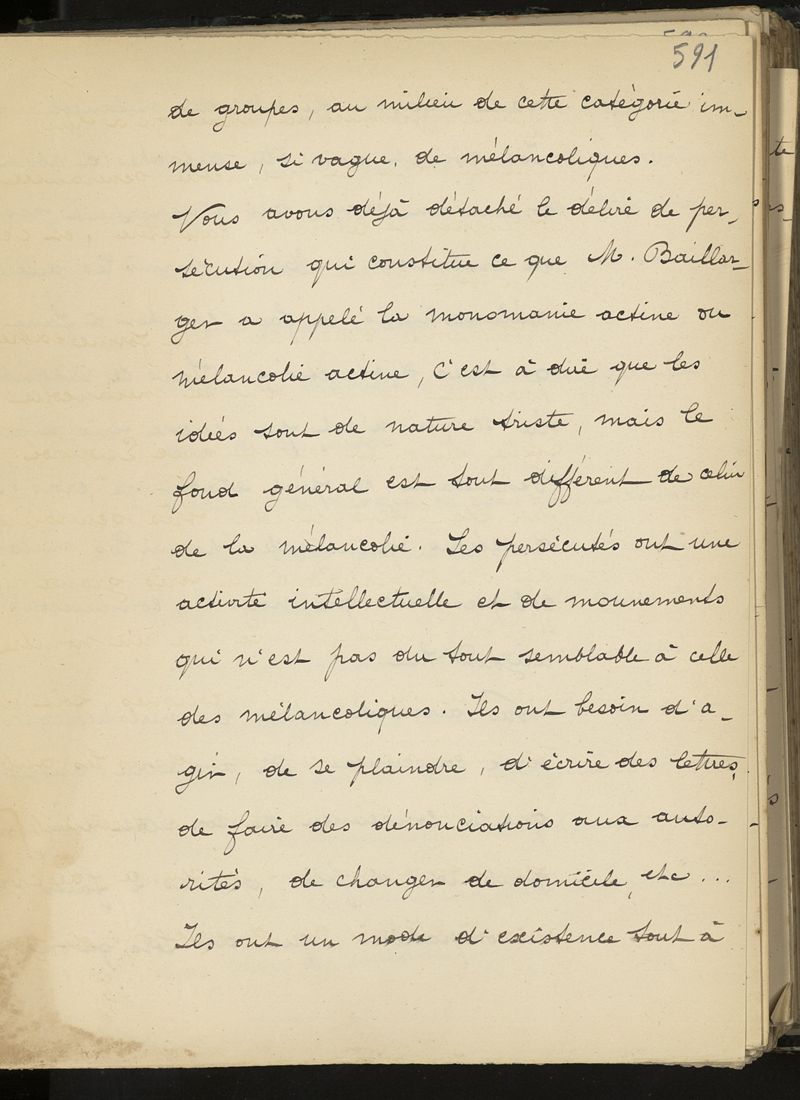 591
de groupes, au milieu de cette catégorie im-
mense, si vague, de mélancoliques.
Nous avons déjà détaché le délire de per-
sécution qui constitue ce que M. Baillar-
ger a appelé la monomanie active ou
mélancolie active, c'est à dire que les
idées sont de nature triste, mais le
fond général est tout différent de celui
de la mélancolie. Les persécutés ont une
activité intellectuelle et de mouvements
qui n'est pas du tout semblable à celle
des mélancoliques. Ils ont besoin d'a-
gir, de se plaindre, d'écrire des lettres,
de faire des dénonciations aux auto-
rités, de changer de domicile, etc...
Ils ont un mode d'existence tout à